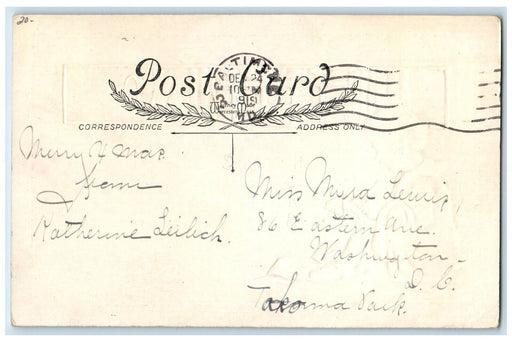 20-
Post Card
BALTIMORE, MD.
DEC 24
1919
CORRESPONDENCE
ADDRESS ONLY
Merry Xmas
from
Katherine Leilich.
Miss Myra Lewis,
86 Eastern Ave.
Washington -
D. C.
Takoma Park.